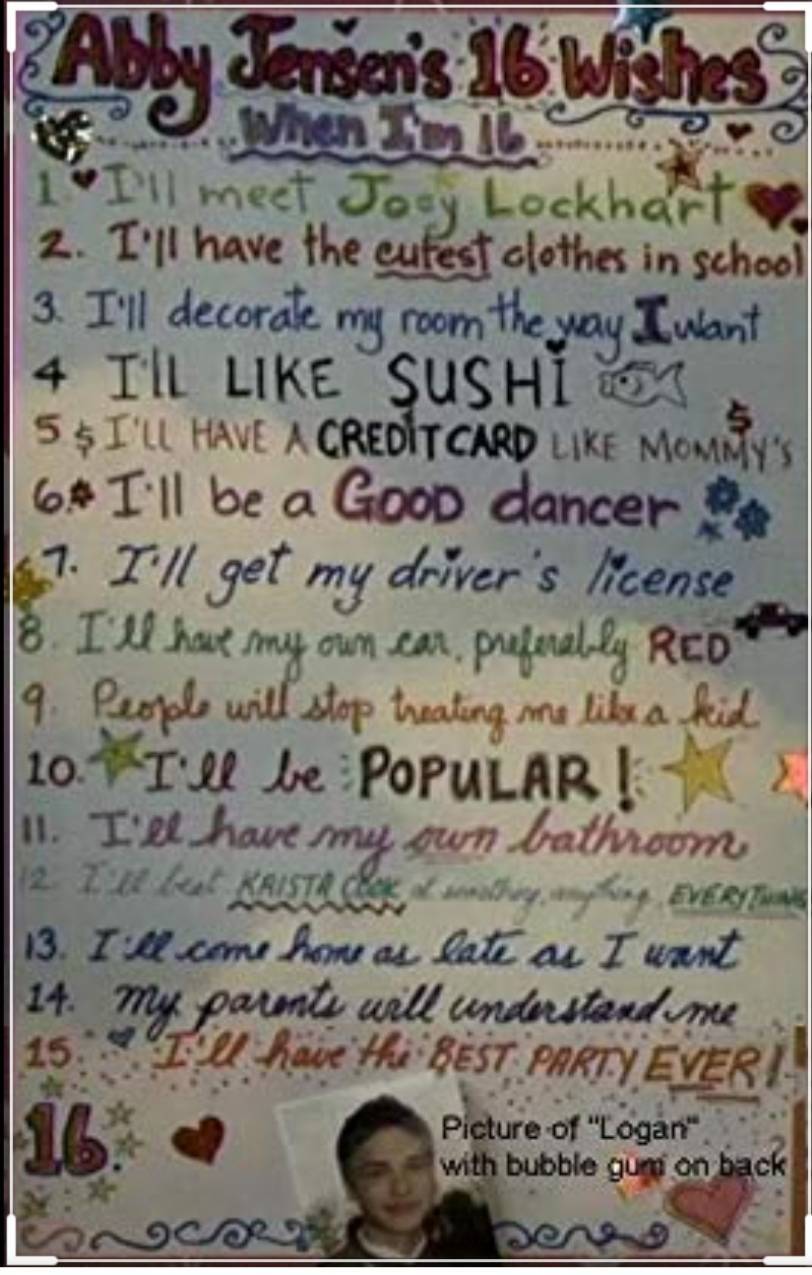 Abby Jensen's 16 Wishes
When I'm 16
1 I'll meet Joey Lockhart
2. I'll have the cutest clothes in school
3. I'll decorate my room the way I want
4 I'll LIKE SUSHI
5 $ I'LL HAVE A CREDIT CARD LIKE MOMMY'S $
6. I'll be a GOOD dancer
7. I'll get my driver's license
8. I'll have my own car, preferably RED
9. People will stop treating me like a kid
10. I'll be POPULAR!
11. I'll have my own bathroom
12 I'll beat KRISTA COOK at something, anything, EVERYTHING
13. I'll come home as late as I want
14. My parents will understand me
15. I'll have the BEST PARTY EVER!
16.
Picture of "Logan"
with bubble gum on back